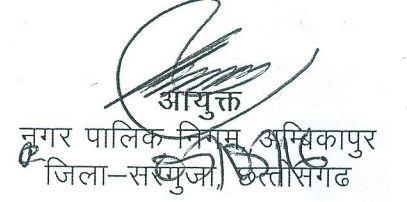 आयुक्त
नगर पालिक निगम, अम्बिकापुर
जिला–सरगुजा, छत्तीसगढ